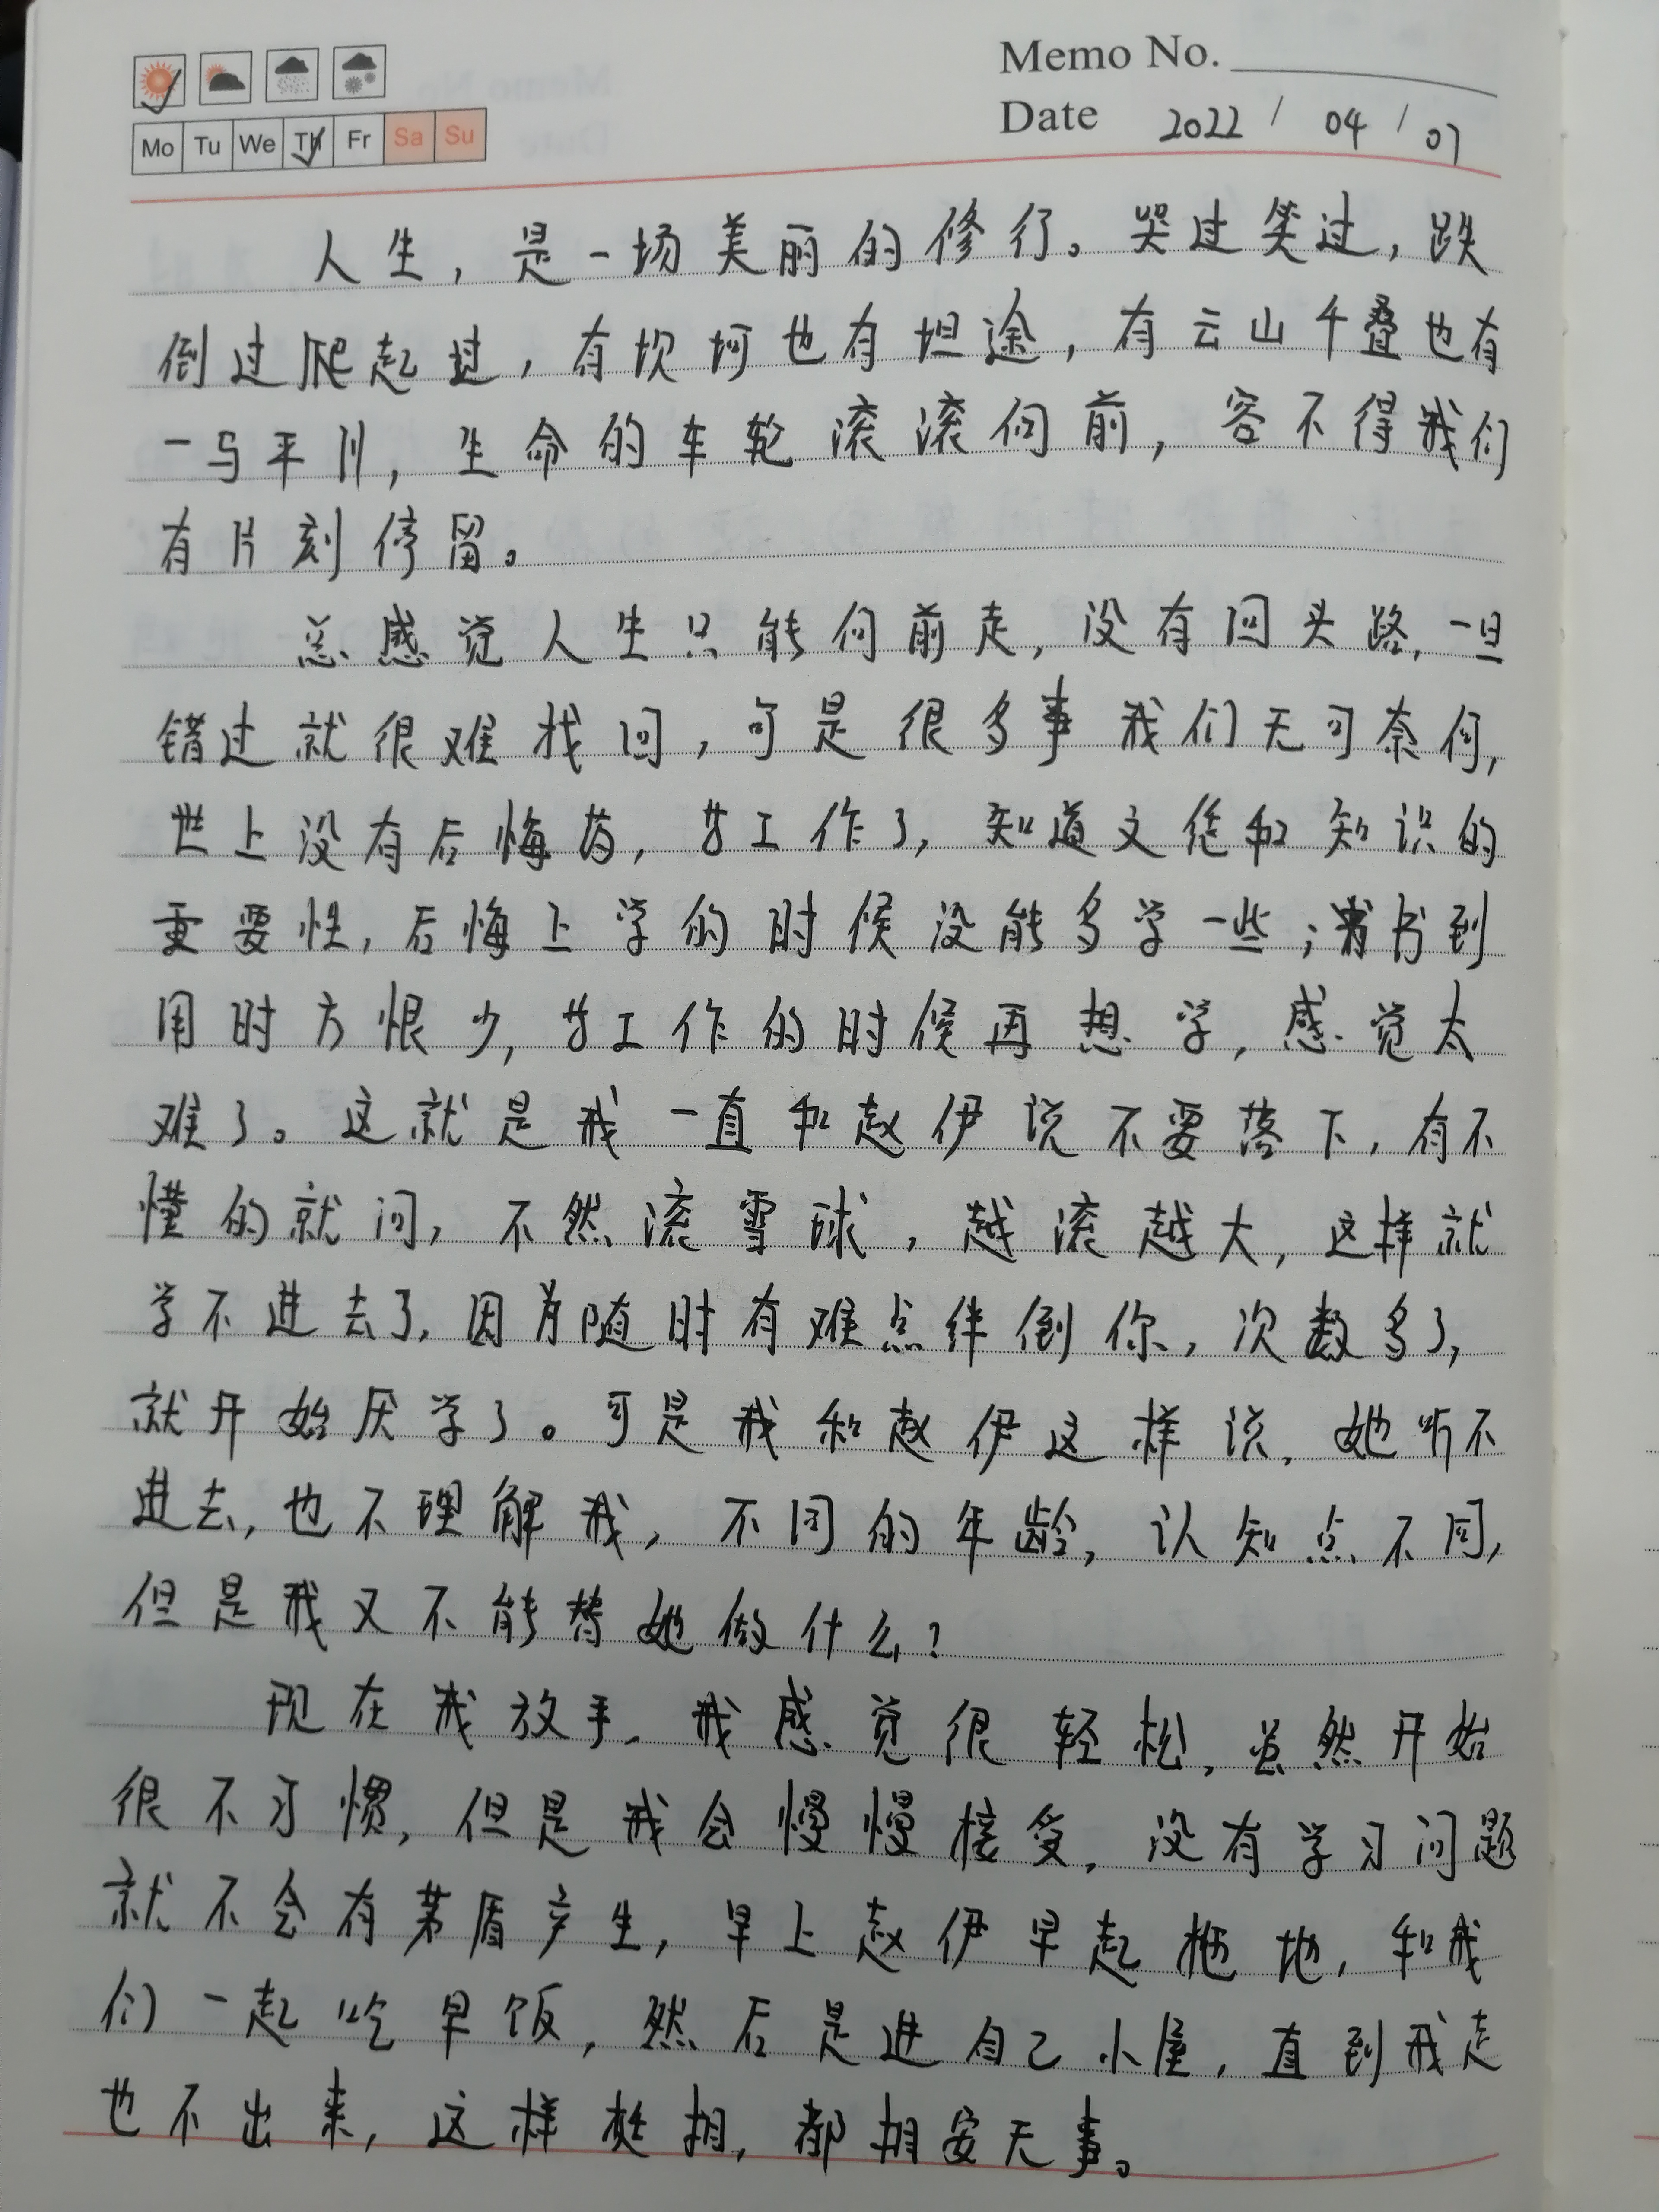 Memo No.
Mo Tu We Th Fr Sa Su
Date 2022 / 04 / 07
人生，是一场美丽的修行。哭过笑过，跌
倒过爬起过，有坎坷也有坦途，有云山千叠也有
一马平川，生命的车轮滚滚向前，容不得我们
有片刻停留。
总感觉人生只能向前走，没有回头路，一旦
错过就很难找回，可是很多事我们无可奈何，
世上没有后悔药，当工作了，知道文凭和知识的
重要性，后悔上学的时候没能多学一些；书到
用时方恨少，当工作的时候再想学，感觉太
难了。这就是我一直和赵伊说不要落下，有不
懂的就问，不然滚雪球，越滚越大，这样就
学不进去了，因为随时有难点绊倒你，次数多了，
就开始厌学了。可是我和赵伊这样说，她听不
进去，也不理解我，不同的年龄，认知点不同，
但是我又不能替她做什么？
现在我放手，我感觉很轻松，虽然开始
很不习惯，但是我会慢慢接受，没有学习问题
就不会有茅盾产生，早上赵伊早起拖地，和我
们一起吃早饭，然后是进自己小屋，直到我走
也不出来，这样挺好，都相安无事。